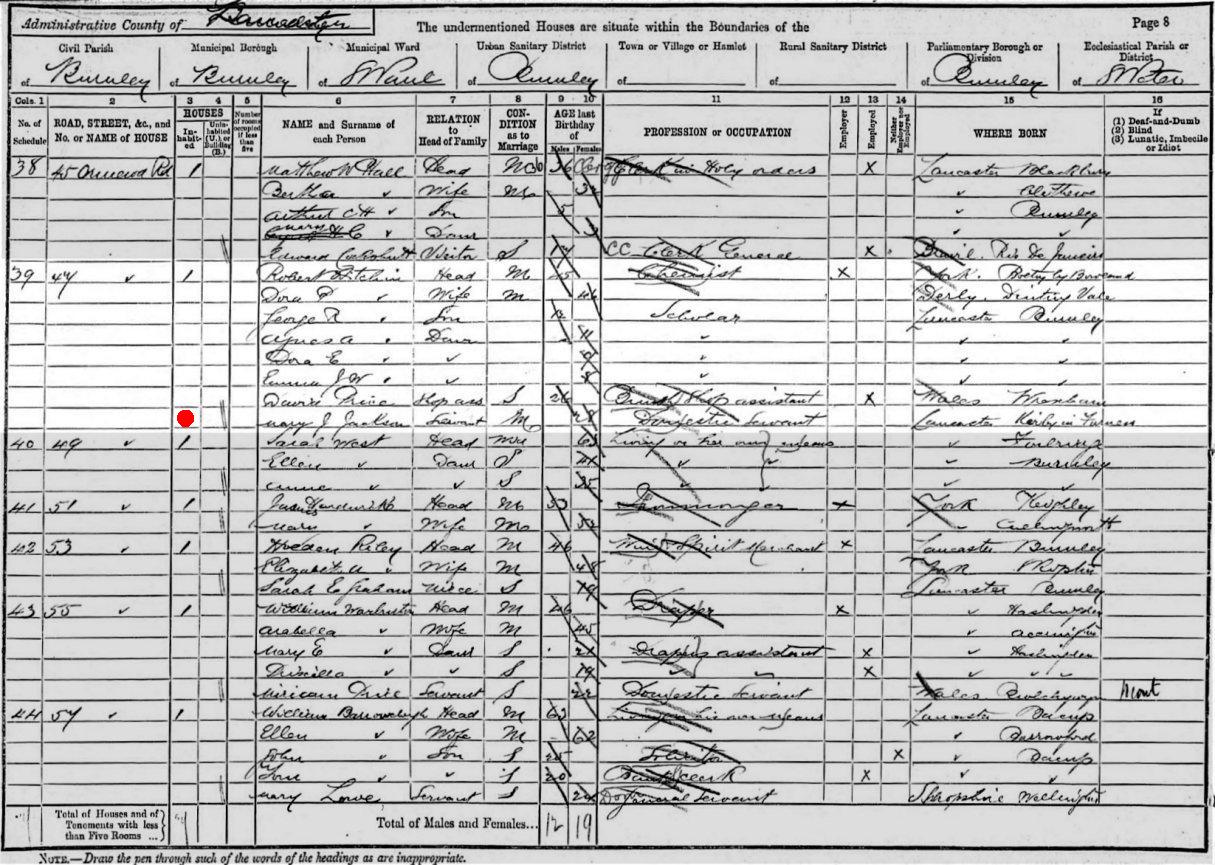 Administrative County of Lancaster The undermentioned Houses are situate within the Boundaries of the Page 8
Civil Parish Municipal Borough Municipal Ward Urban Sanitary District Town or Village or Hamlet Rural Sanitary District Parliamentary Borough or Division Ecclesiastical Parish or District
of Burnley of Burnley of Burnley of of of Burnley of St Peter
Cols. 1 2 3 4 5 6 7 8 9 10 11 12 13 14 15 16
No. of Schedule ROAD, STREET, &c., and No. or NAME of HOUSE HOUSES In-habit-ed Unin-habited (U.) or Building (B.) Number of rooms occupied if less than five NAME and Surname of each Person RELATION to Head of Family CON-DITION as to Marriage AGE last Birthday of Males Females PROFESSION or OCCUPATION Employer Employed Neither Employer nor Employed WHERE BORN If (1) Deaf-and-Dumb (2) Blind (3) Lunatic, Imbecile or Idiot
38 45 Ormerod Rd 1 Matthew W Hall Head M 36 Clerk in Holy orders X Lancaster Blackburn
Bertha Wife M 32 Clitheroe
Arthur C H Son 5 Burnley
Mary H C Daur 3
Edward Visitor S 17 Clerk General X Brazil. Rio De Janeiro
39 47 1 Robert Hitchin Head M 45 Chemist X York.
Dora Wife M 46 Derby. Dinting Vale
George R Son 12 Scholar Lancaster Burnley
Agnes A Daur 11
Dora E 9
Emma J W 8
David Price Shop ass S 26 assistant X Wales Wrexham
Mary J Jackson Servant M 28 Domestic Servant Lancaster Kirby in Furness
40 49 1 Sarah West Head 63 Living on her own means
Ellen Daur S Burnley
Annie S 35
41 51 1 Head M 53 Ironmonger X York Keighley
Mary Wife M 52 Cullingworth
42 53 1 Holden Riley Head M 46 Wine & Spirit Merchant X Lancaster Burnley
Elizabeth A Wife M 48 York
Sarah E Graham Niece S 19 Lancaster Burnley
43 55 1 William Warburton Head M 46 Draper X Haslingden
Arabella Wife M 45 Accrington
Mary E Daur S 21 Drapers assistant X Haslingden
Priscilla S 19 X
Miriam Price Servant S 22 Domestic Servant Wales
44 57 1 William Head M 63 Living on his own means Lancaster Bacup
Ellen Wife M 62 Barrowford
John Son S 25 X Bacup
Tom S 20 Bank Clerk X
Mary Lowe Servant S 24 General Servant Shropshire Wellington
Total of Houses and of Tenements with less than Five Rooms ... Total of Males and Females... 12 19
NOTE.—Draw the pen through such of the words of the headings as are inappropriate.